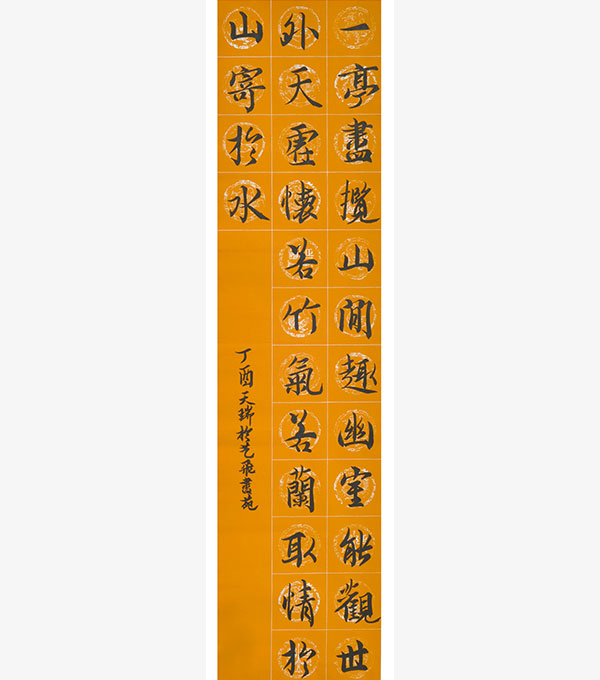 一亭盡攬山間趣幽室能觀世
外天虛懷若竹氣若蘭取情於
山寄於水
丁酉天瑞於艺飛書苑